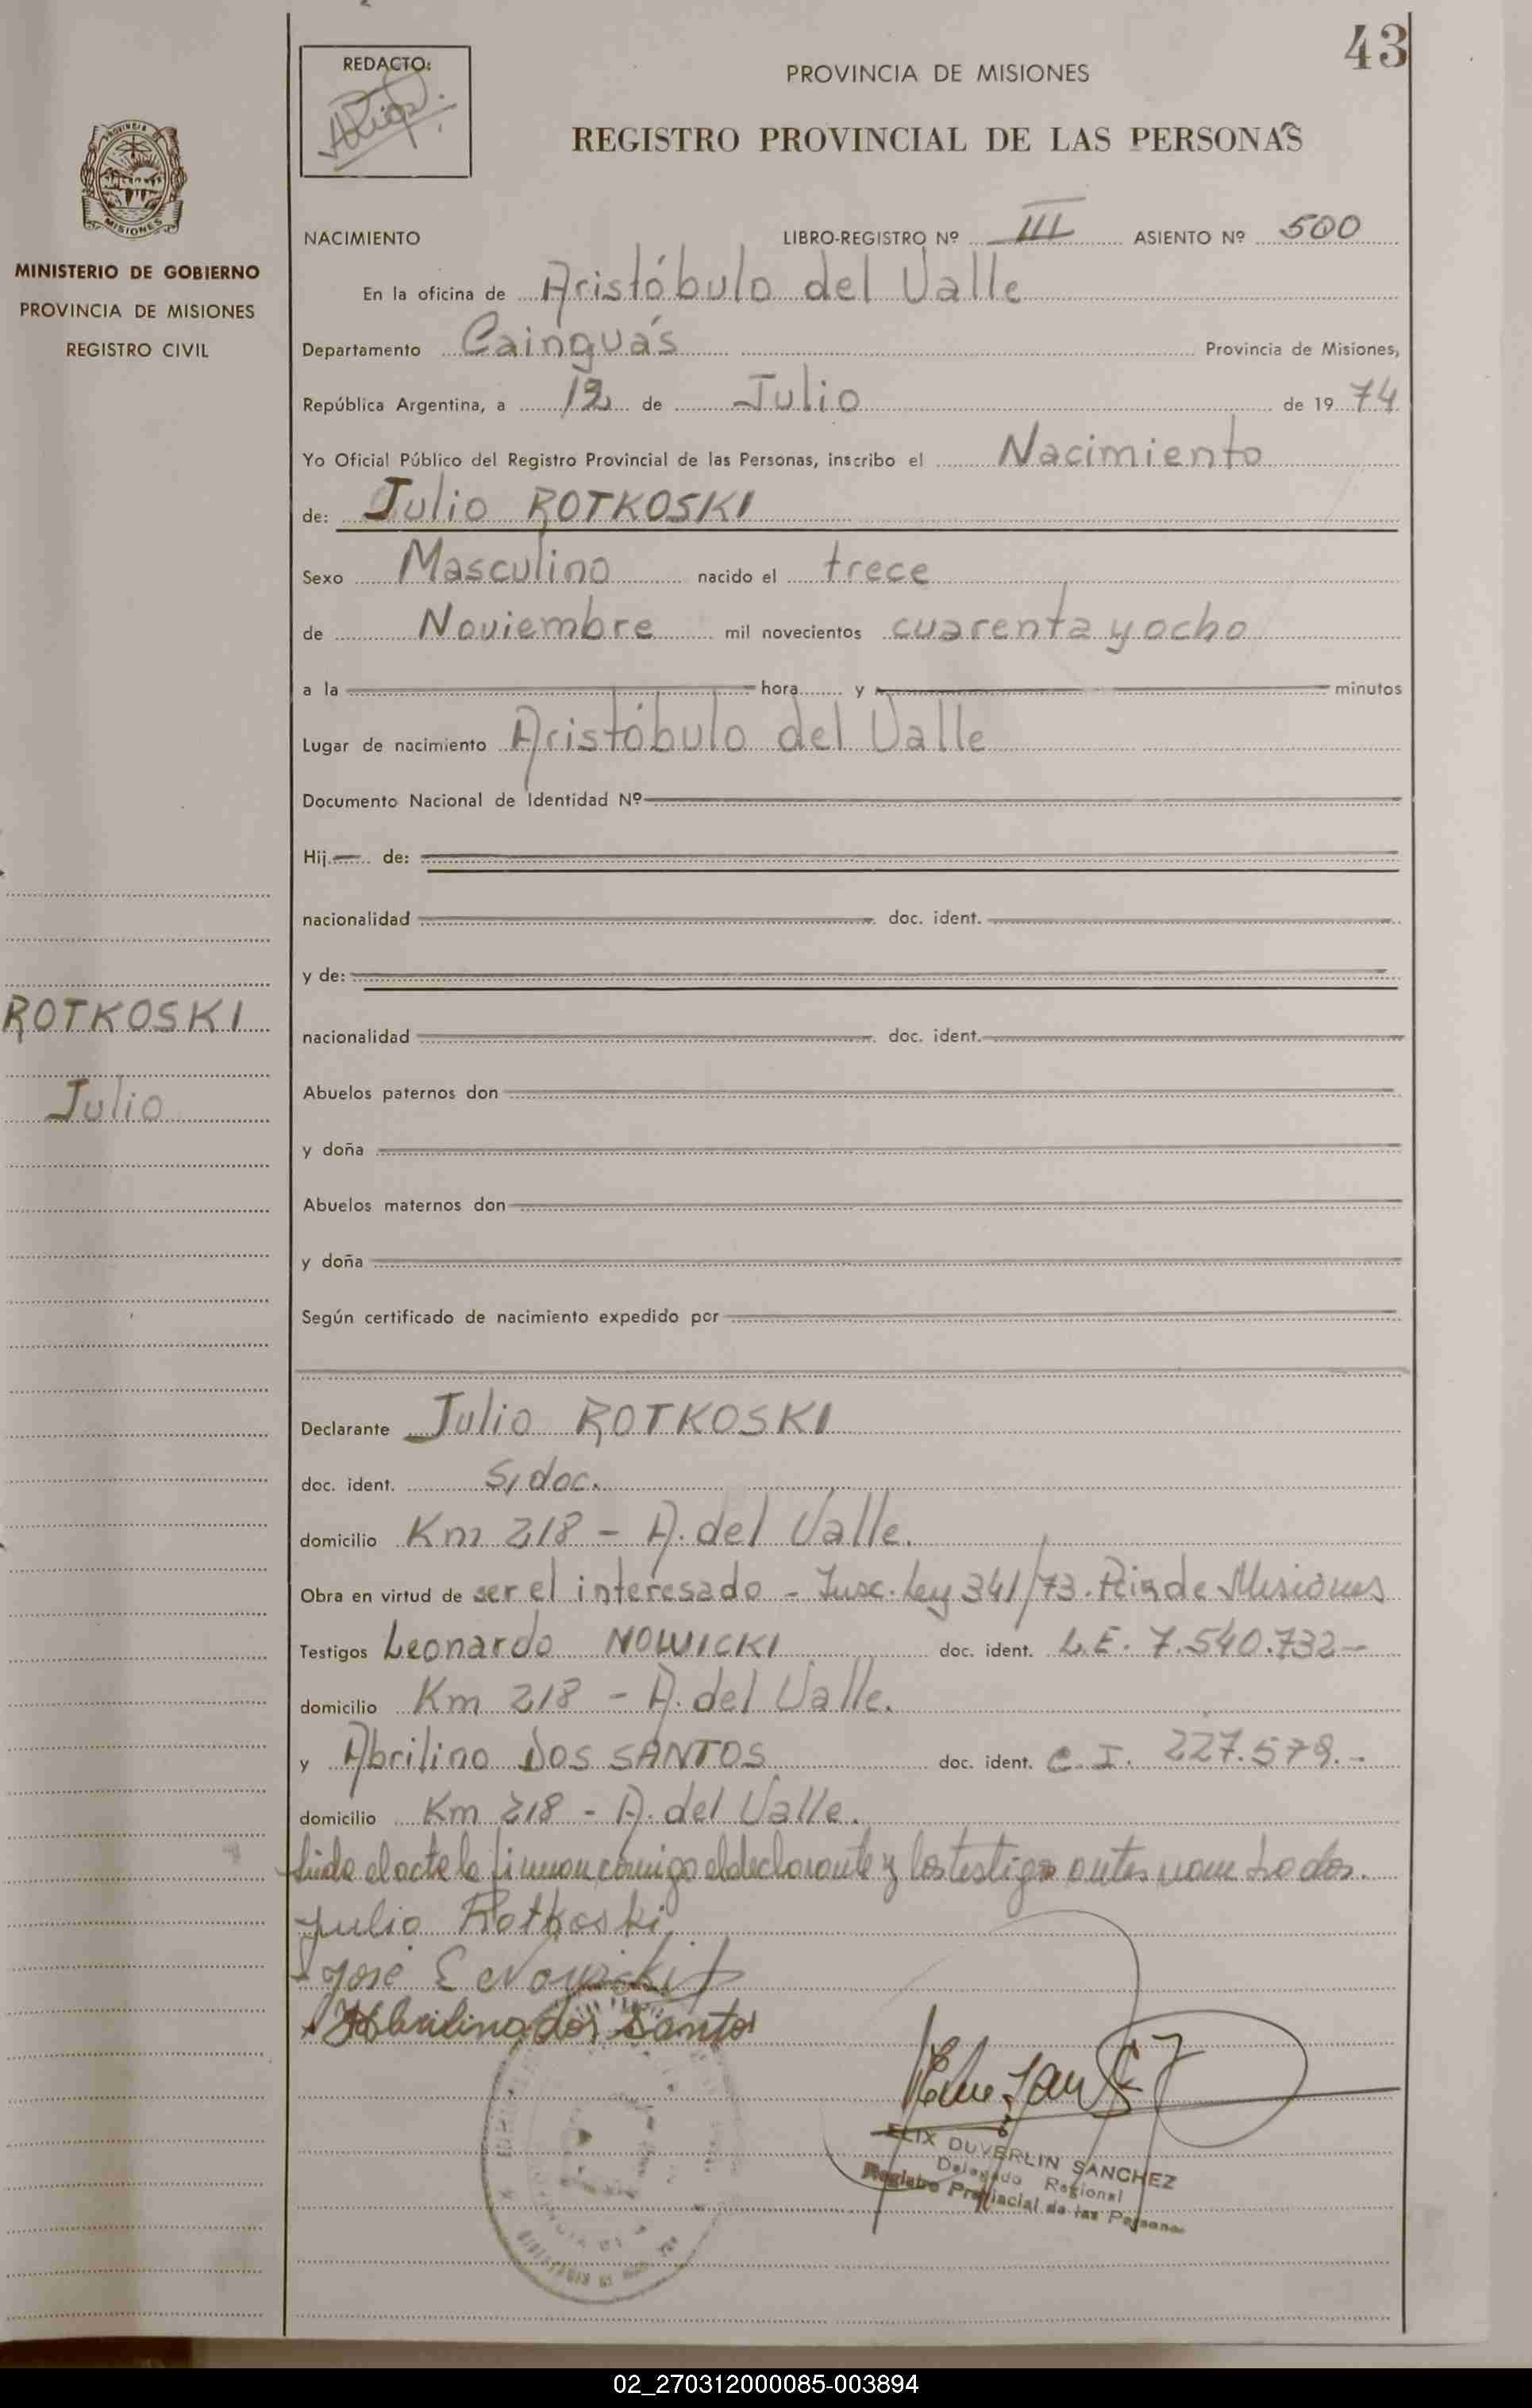 43
REDACTO:
PROVINCIA DE MISIONES
REGISTRO PROVINCIAL DE LAS PERSONAS
MISIONES
MINISTERIO DE GOBIERNO
PROVINCIA DE MISIONES
REGISTRO CIVIL
ROTKOSKI
Julio
NACIMIENTO LIBRO-REGISTRO Nº III ASIENTO Nº 500
En la oficina de Aristóbulo del Valle
Departamento Cainguás Provincia de Misiones,
República Argentina, a 12 de Julio de 1974
Yo Oficial Público del Registro Provincial de las Personas, inscribo el Nacimiento
de: Julio ROTKOSKI
Sexo Masculino nacido el trece
de Noviembre mil novecientos cuarenta y ocho
a la hora y minutos
Lugar de nacimiento Aristóbulo del Valle
Documento Nacional de Identidad Nº
Hij de:
nacionalidad doc. ident.
y de:
nacionalidad doc. ident.
Abuelos paternos don
y doña
Abuelos maternos don
y doña
Según certificado de nacimiento expedido por
Declarante Julio ROTKOSKI
doc. ident. S/doc.
domicilio Km 218 - A. del Valle.
Obra en virtud de ser el interesado - Insc. Ley 341/73. Pcia de Misiones
Testigos Leonardo NOWICKI doc. ident. L.E. 7.540.732-
domicilio Km 218 - A. del Valle.
y Abrilino DOS SANTOS doc. ident. C.I. 227.579.-
domicilio Km 218 - A. del Valle.
Leida el acta la firman conmigo el declarante y los testigos antes nombrados.
Julio Rotkoski
José E Nowicki
Abrilino dos Santos
ELIX DUVERLIN SANCHEZ
Delegado Regional
Registro Provincial de las Personas
02_270312000085-003894